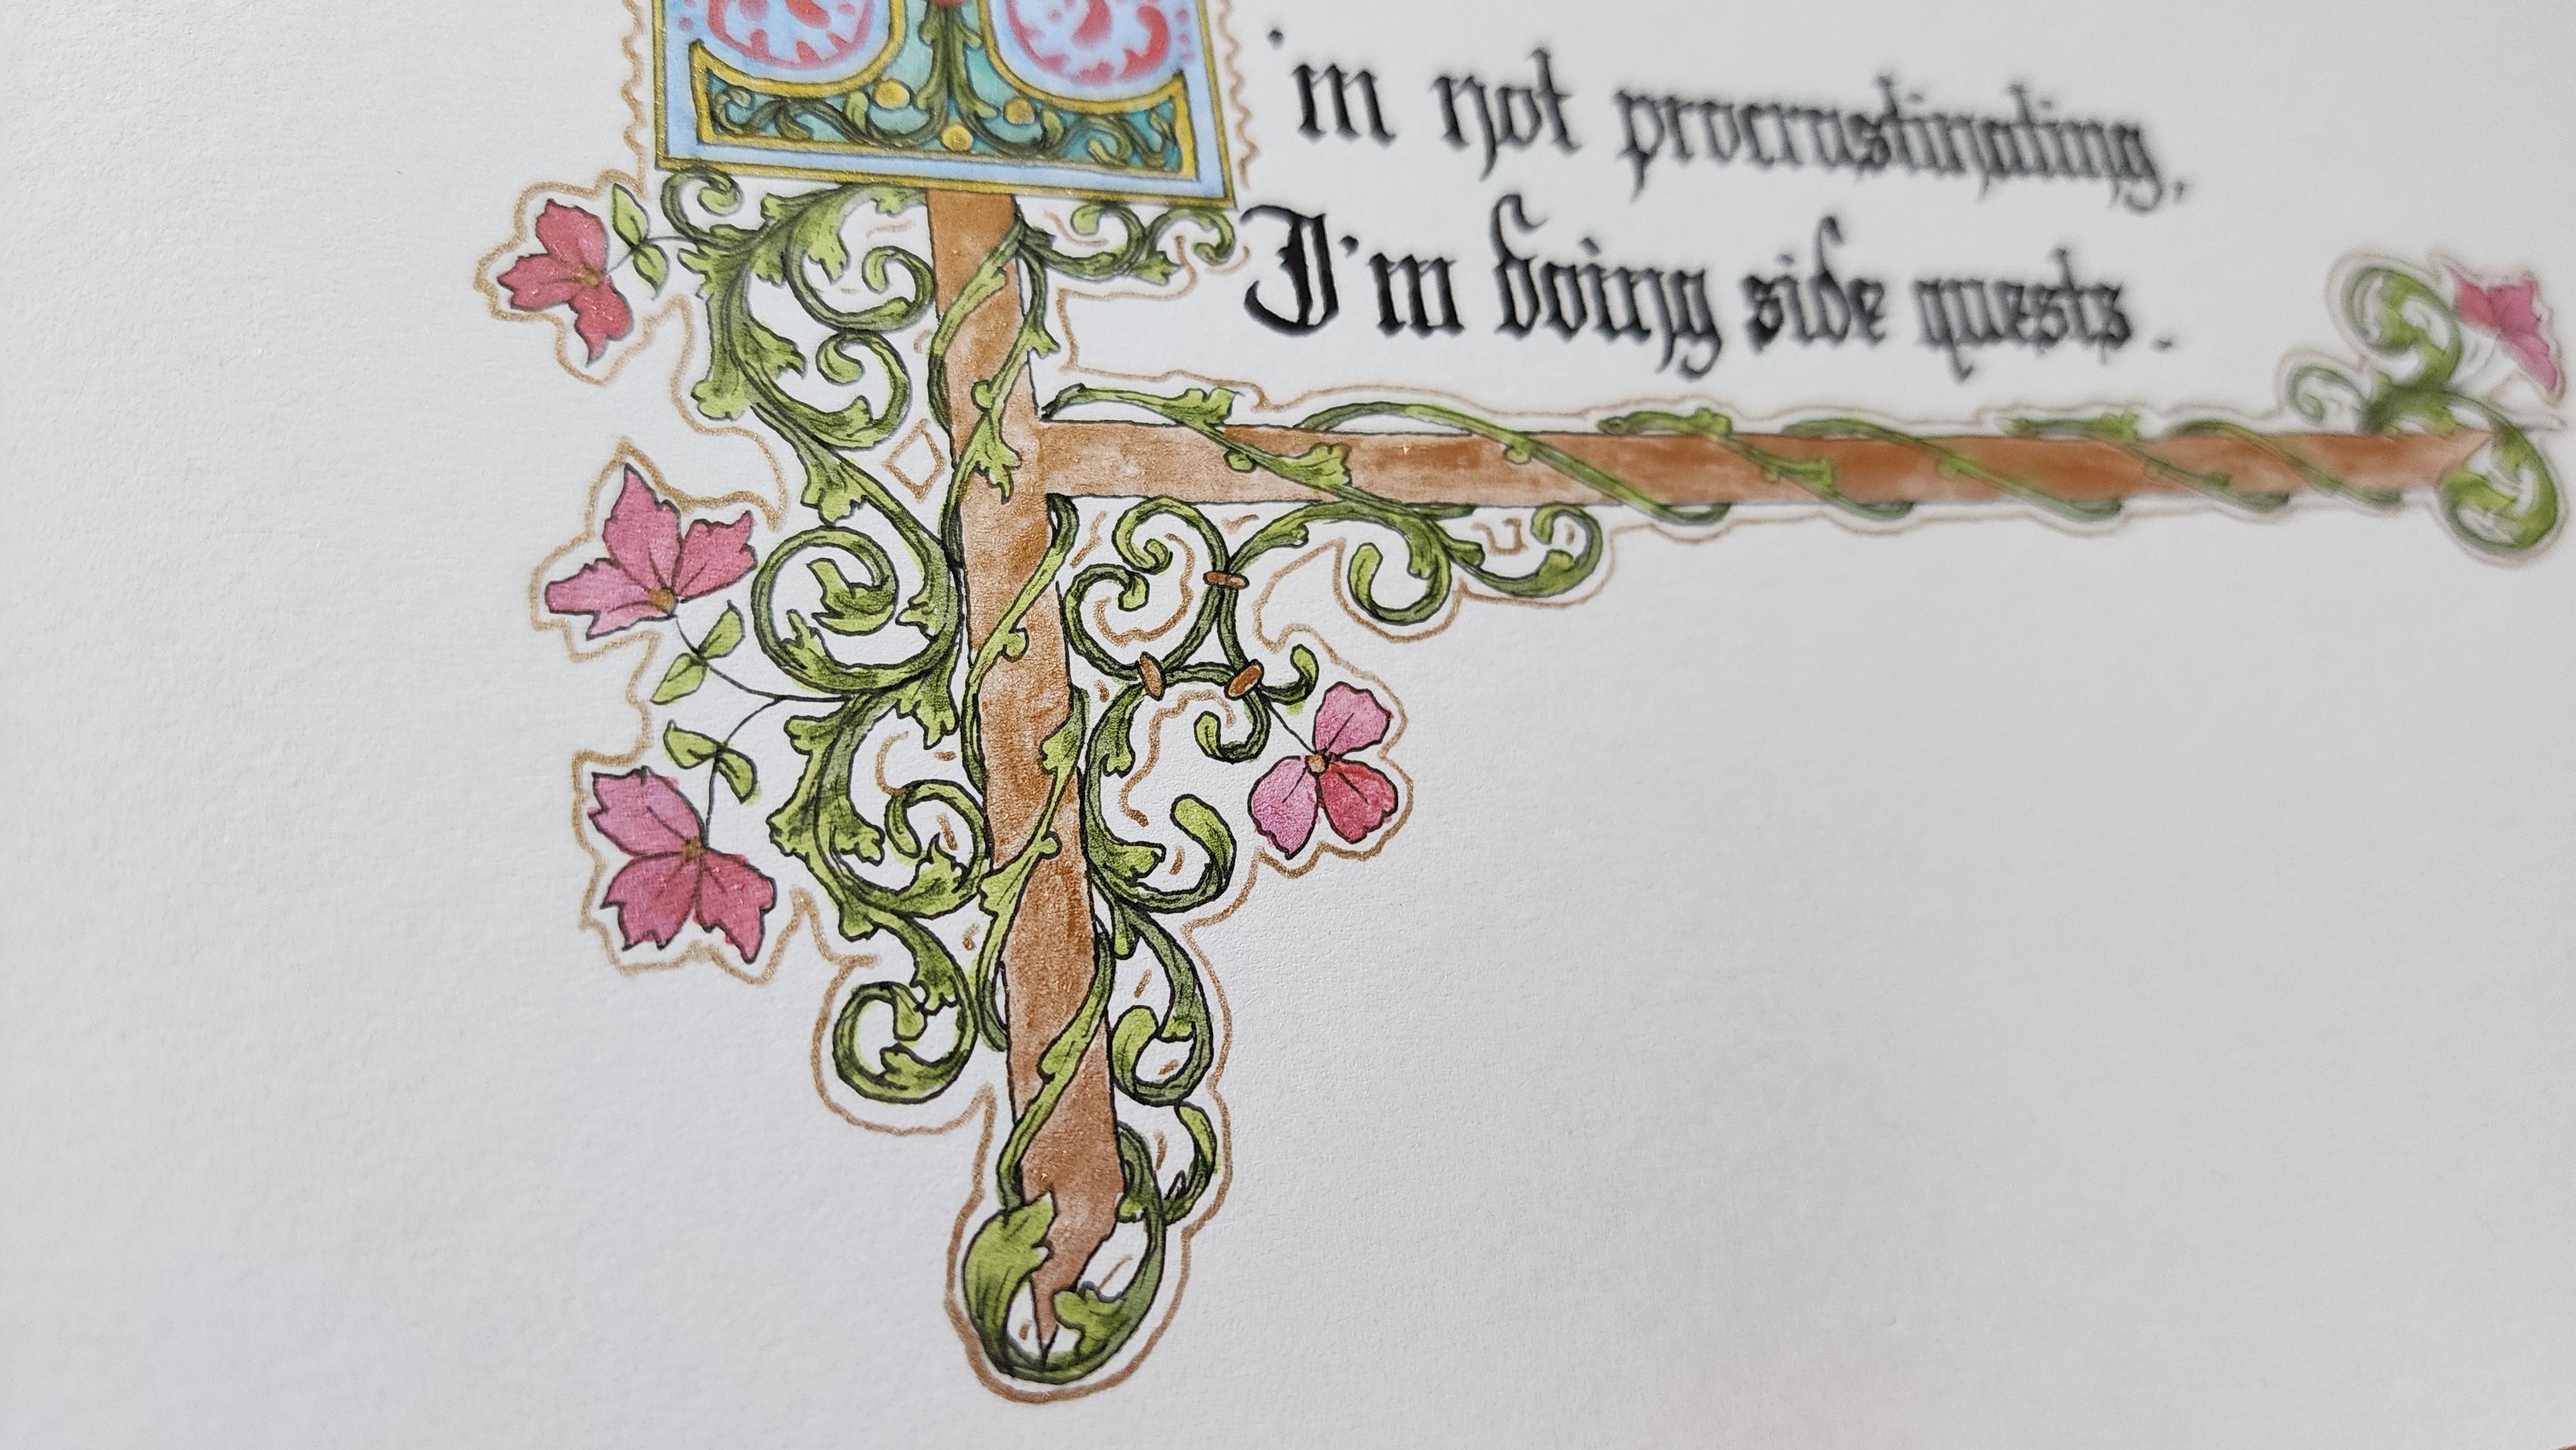 'm not procrastinating,
I'm doing side quests.